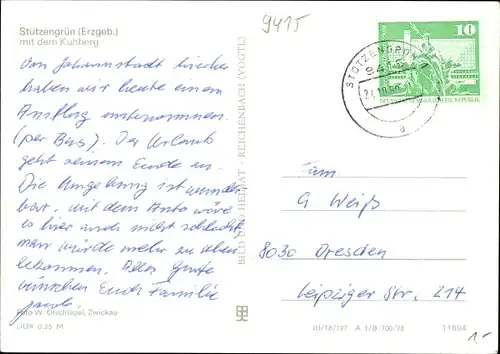 9415
Stützengrün (Erzgeb.)
mit dem Kuhberg
Von Johannstadt hierher
haben wir heute einen
Ausflug unternommen.
(per Bus). Der Urlaub
geht seinem Ende zu.
Die Umgebung ist wunder-
bar, mit dem Auto wäre
es hier auch nicht schlecht,
man würde mehr zu sehen
bekommen. Alles Gute
wünschen Euch Familie
Foto W. Olschlegel, Zwickau
DDR 0,25 M
BILD UND HEIMAT · REICHENBACH (VOGTL)
STÜTZENGRÜN 1
9415
a
10
DEUTSCHE DEMOKRATISCHE REPUBLIK
Fam.
G Weiß
8030 Dresden
Leipziger Str. 214
III/18/197 A 1/B 700/78 11694
1,-